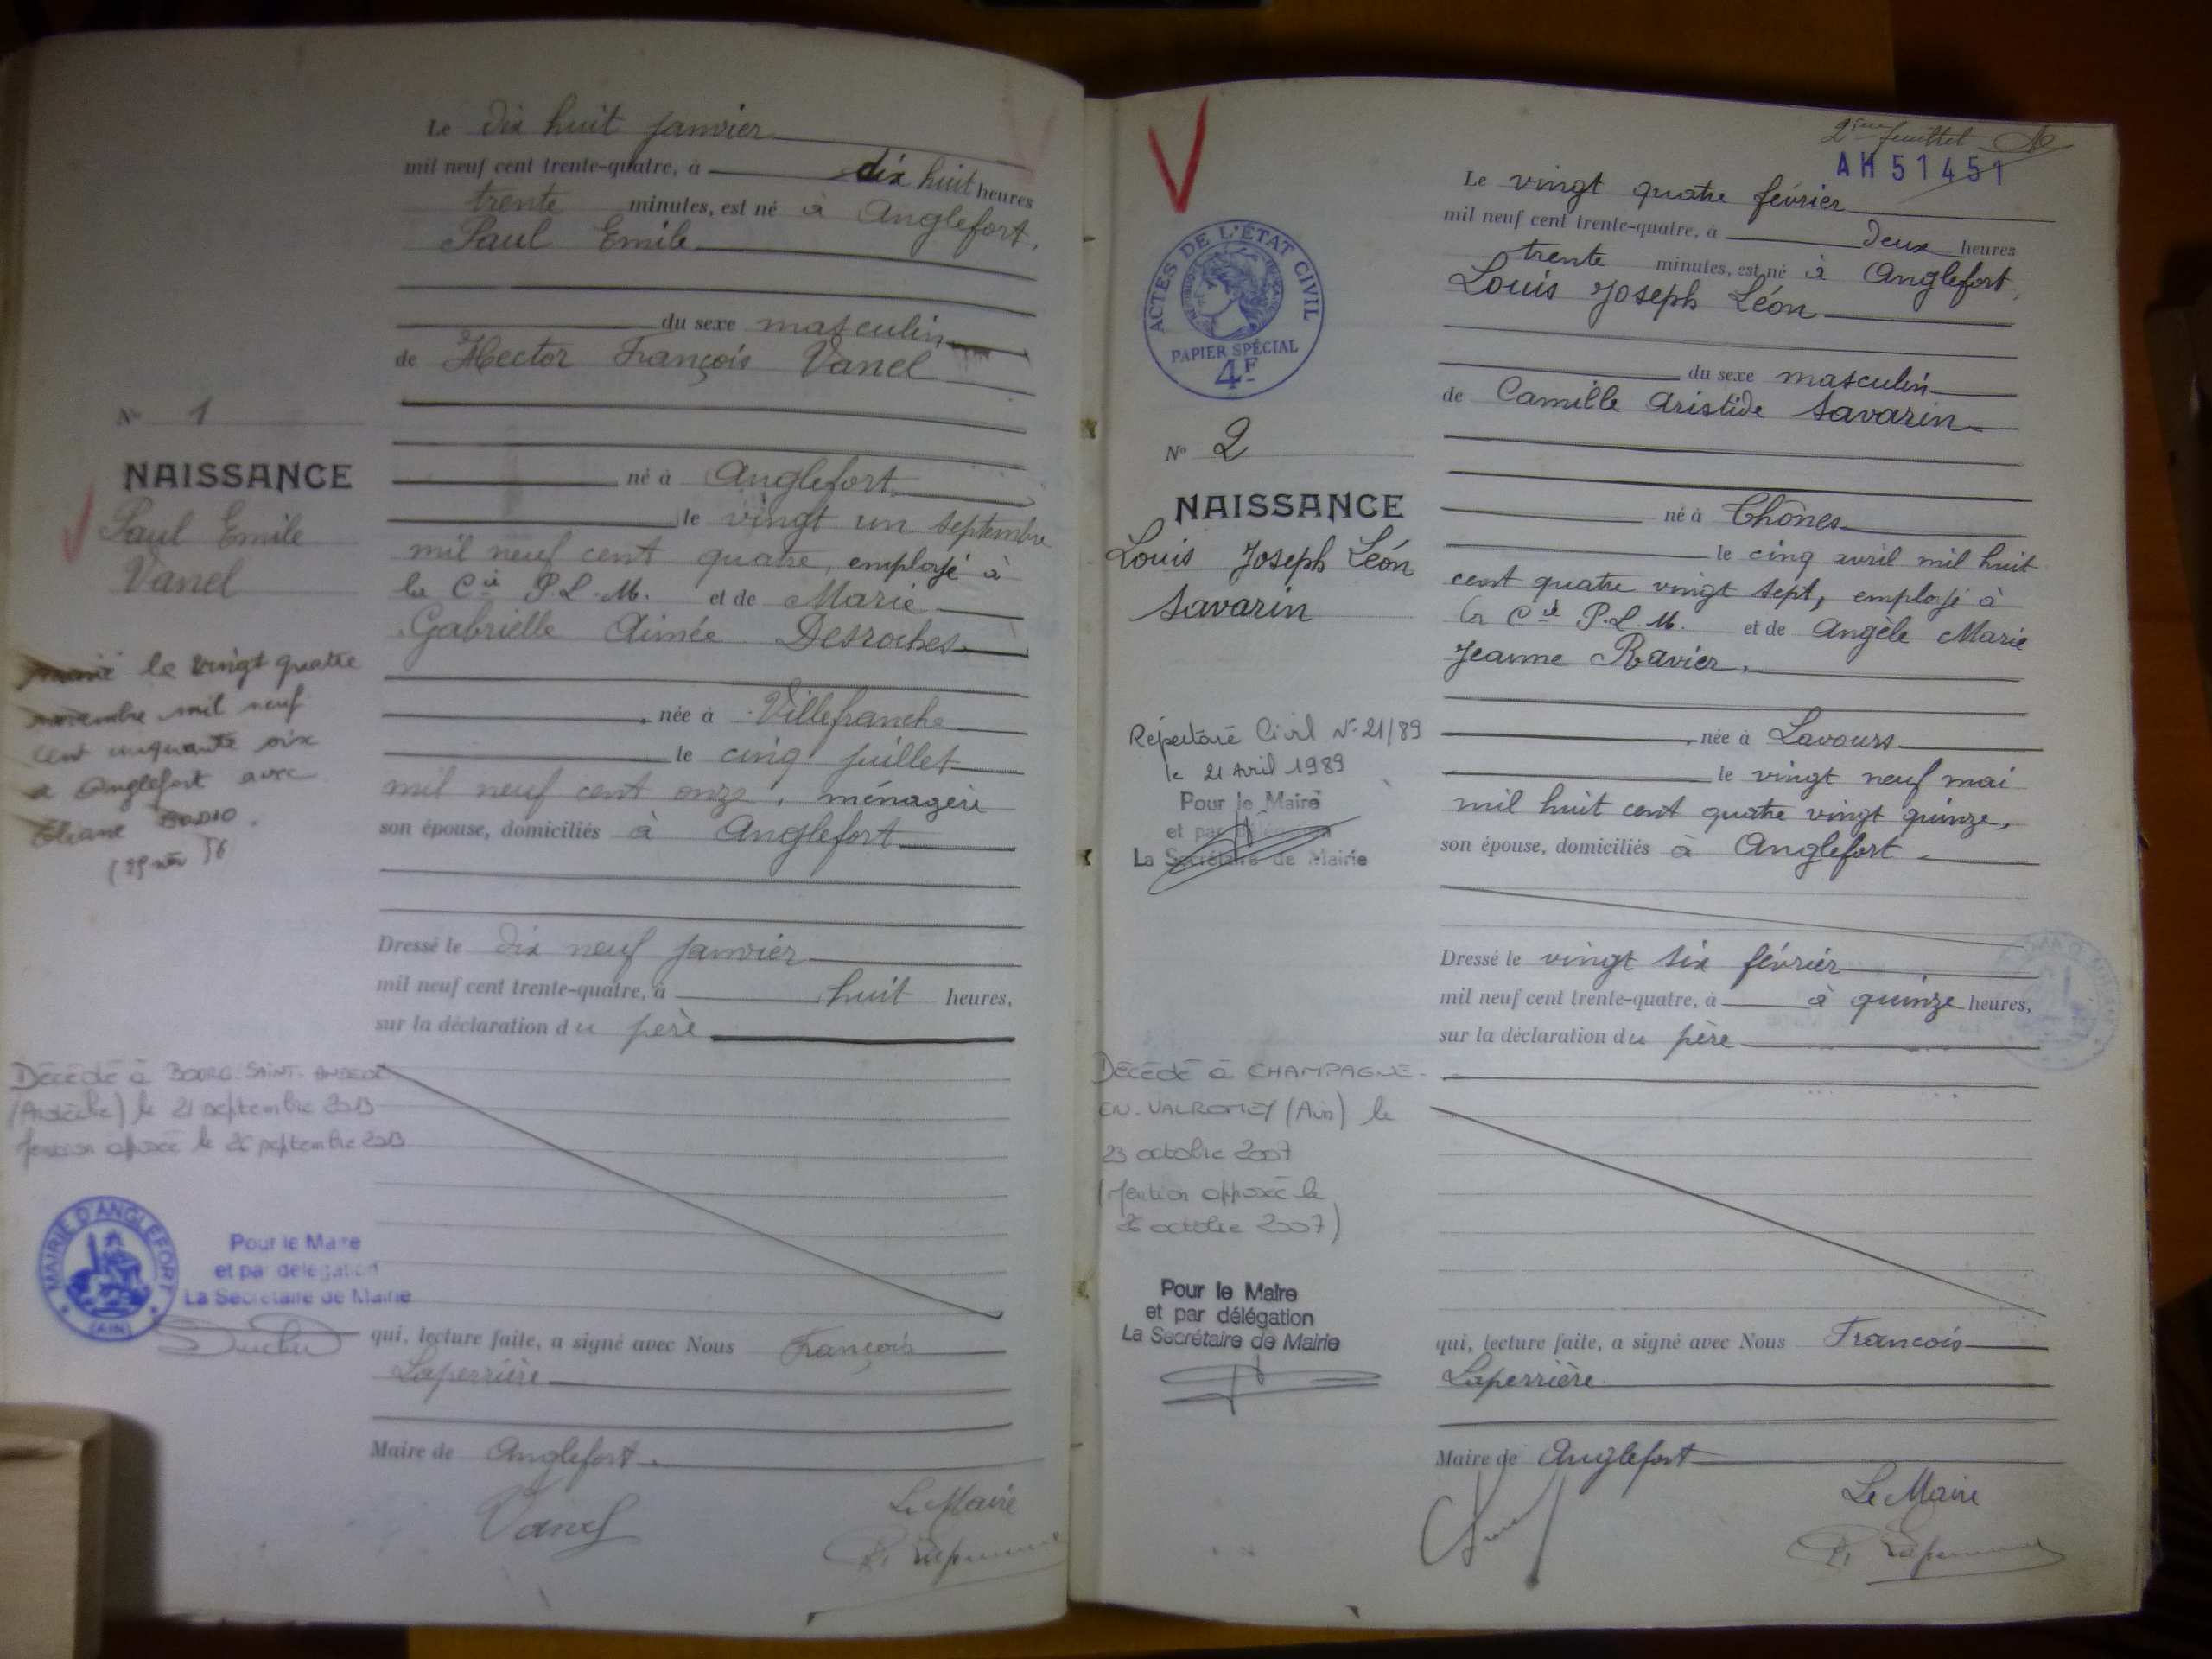 Le dix huit janvier
mil neuf cent trente-quatre, à dix huit heures
trente minutes, est né à Anglefort,
Paul Emile
du sexe masculin
de Hector François Vanel
né à Anglefort
le vingt un septembre
mil neuf cent quatre, employé à
la Cie P.L.M. et de Marie
Gabrielle Aimée Desroches
née à Villefranche
le cinq juillet
mil neuf cent onze, ménagère
son épouse, domiciliés à Anglefort
Dressé le dix neuf janvier
mil neuf cent trente-quatre, à huit heures,
sur la déclaration du père
qui, lecture faite, a signé avec Nous François
Laperrière
Maire de Anglefort.
Vanel
Le Maire
N° 1
NAISSANCE
Paul Emile
Vanel
marié le vingt quatre
novembre mil neuf
cent cinquante six
à Anglefort avec
Eliane BODIO.
Décédé à BOURG-SAINT-ANDEOL
(Ardèche) le 21 septembre 2013
Mention apposée le 26 septembre 2013
MAIRIE D'ANGLEFORT
(AIN)
Pour le Maire
et par délégation
La Secrétaire de Mairie
2ème feuillet
AH 51451
Le vingt quatre février
mil neuf cent trente-quatre, à deux heures
trente minutes, est né à Anglefort,
Louis Joseph Léon
du sexe masculin
de Camille Aristide Savarin
né à Chônes
le cinq avril mil huit
cent quatre vingt sept, employé à
la Cie P.L.M. et de Angèle Marie
Jeanne Ravier,
née à Lavours
le vingt neuf mai
mil huit cent quatre vingt quinze,
son épouse, domiciliés à Anglefort.
Dressé le vingt six février
mil neuf cent trente-quatre, à à quinze heures,
sur la déclaration du père
qui, lecture faite, a signé avec Nous Francois
Laperrière
Maire de Anglefort
Le Maire
ACTES DE L'ÉTAT CIVIL
PAPIER SPÉCIAL
4F
N° 2
NAISSANCE
Louis Joseph Léon
Savarin
Répertoire Civil N° 21/89
le 21 Avril 1989
Pour le Maire
et par délégation
La Secrétaire de Mairie
Décédé à CHAMPAGNE-
EN-VALROMEY (Ain) le
23 octobre 2007
(Mention apposée le
26 octobre 2007)
Pour le Maire
et par délégation
La Secrétaire de Mairie